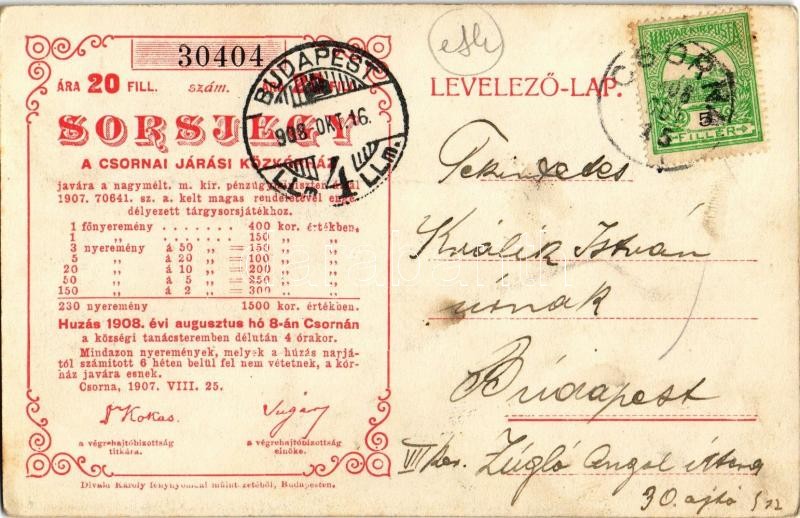 30404
ÁRA 20 FILL. szám. FILL.
SORSJEGY
A CSORNAI JÁRÁSI KÖZKÓRHÁZ
javára a nagymélt. m. kir. pénzügyminiszter által
1907. 70641. sz. a. kelt magas rendeletével enge-
délyezett tárgysorsjátékhoz.
1 főnyeremény ....... 400 kor. értékben,
1 „ ....... 150 „ „
3 nyeremény á 50 „ =150 „ „
5 „ á 20 „ =100 „ „
20 „ á 10 „ =200 „ „
50 „ á 5 „ =250 „ „
150 „ á 2 „ =300 „ „
230 nyeremény 1500 kor. értékben.
Huzás 1908. évi augusztus hó 8-án Csornán
a községi tanácsteremben délután 4 órakor.
Mindazon nyeremények, melyek a húzás narjá-
tól számított 6 héten belül fel nem vétetnek, a kór-
ház javára esnek.
Csorna, 1907. VIII. 25.
Dr Kokas.
a végrehajtóbizottság
titkára.
a végrehajtóbizottság
elnöke.
Divald Károly fénynyomdai műintézetéből, Budapesten.
BUDAPEST
908. OKT. 16.
4
LEVELEZŐ-LAP.
MAGYAR KIR. POSTA
5
FILLÉR
CSORNA
Tekintetes
Králik István
úrnak
Budapest
VII ker. Zugló Angol utca
30. ajtó